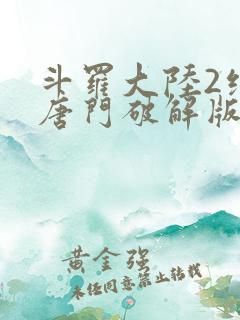 斗羅大陸2
唐門破解版
黃金强
未经同意禁止转载